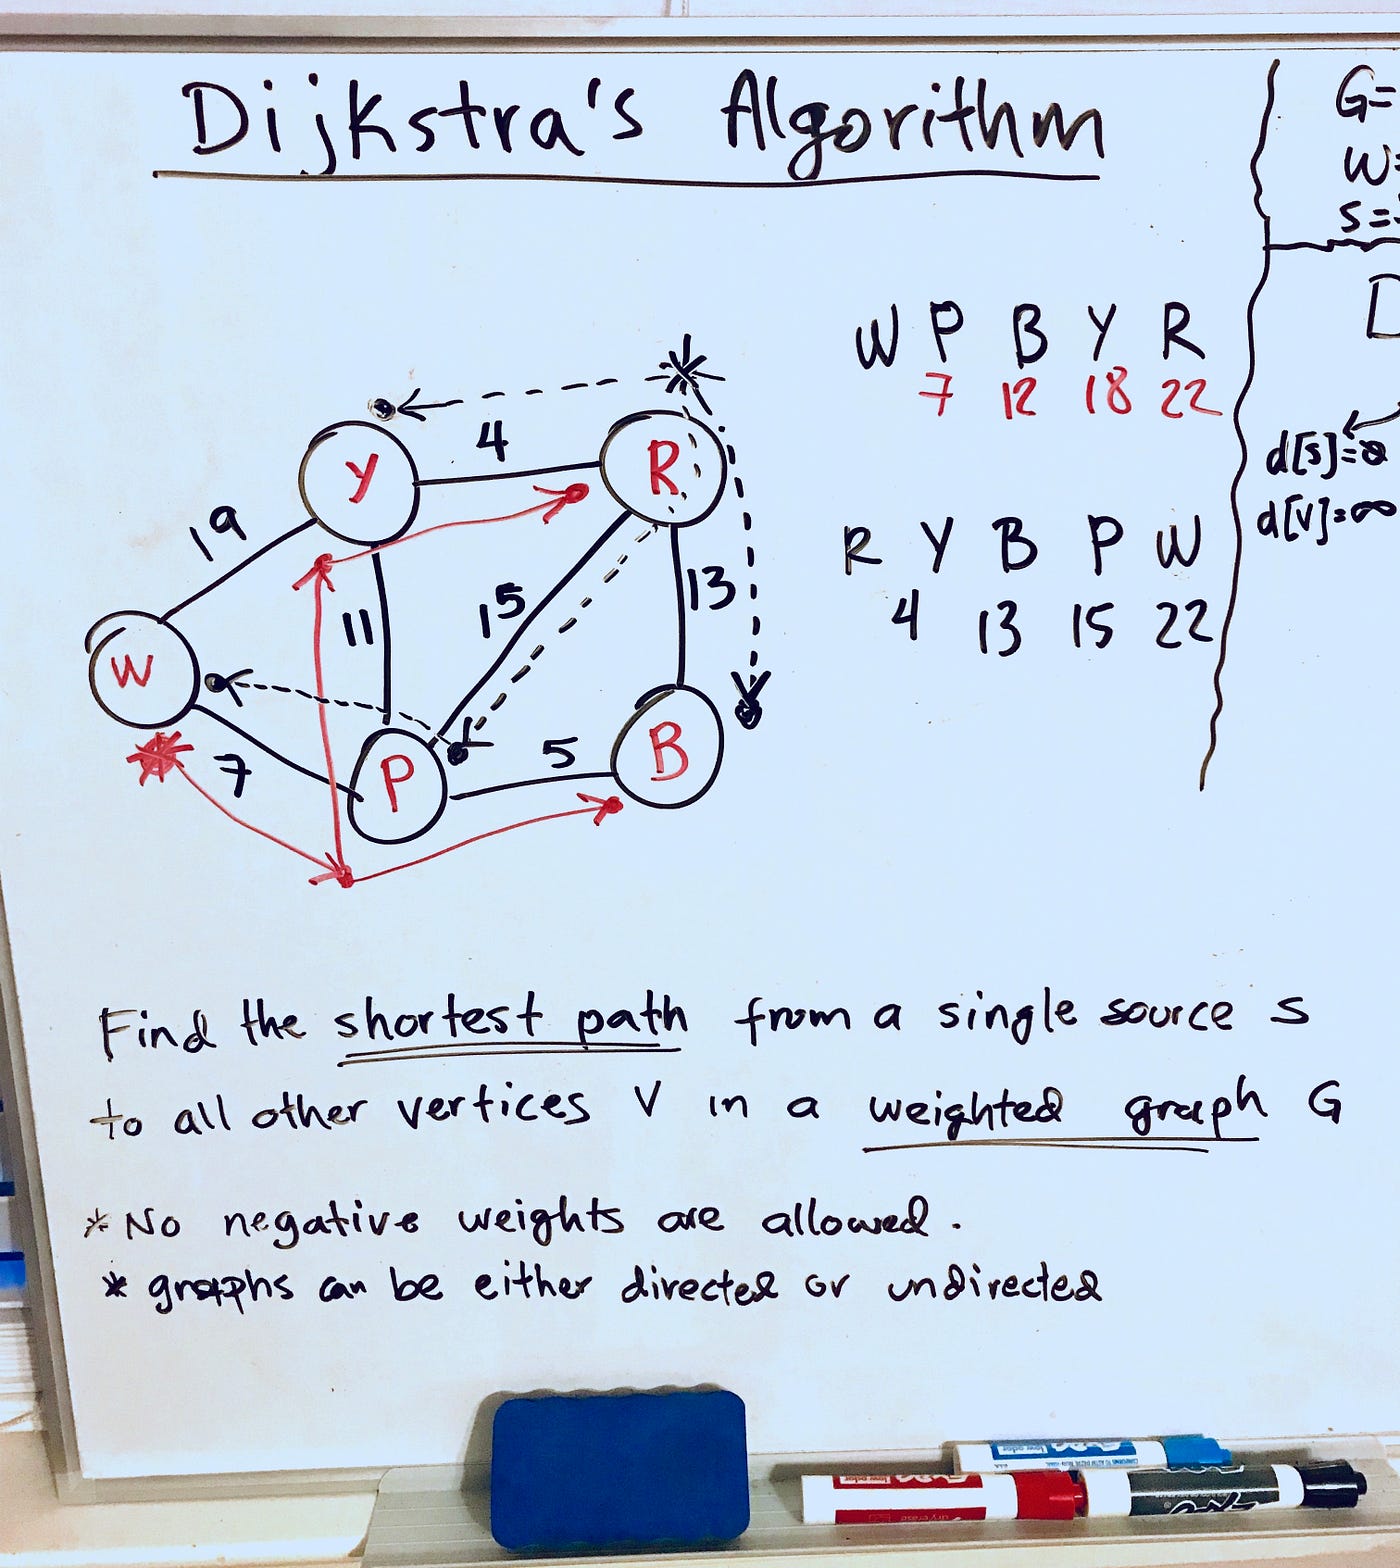 Dijkstra's Algorithm
G=
W=
S=
D
W P B Y R
7 12 18 22
d[s]=0
d[v]=∞
R Y B P W
4 13 15 22
Y
4
R
19
11
15
13
W
7
P
5
B
Find the shortest path from a single source s
to all other vertices V in a weighted graph G
* No negative weights are allowed.
* graphs can be either directed or undirected
EXPO
low odor